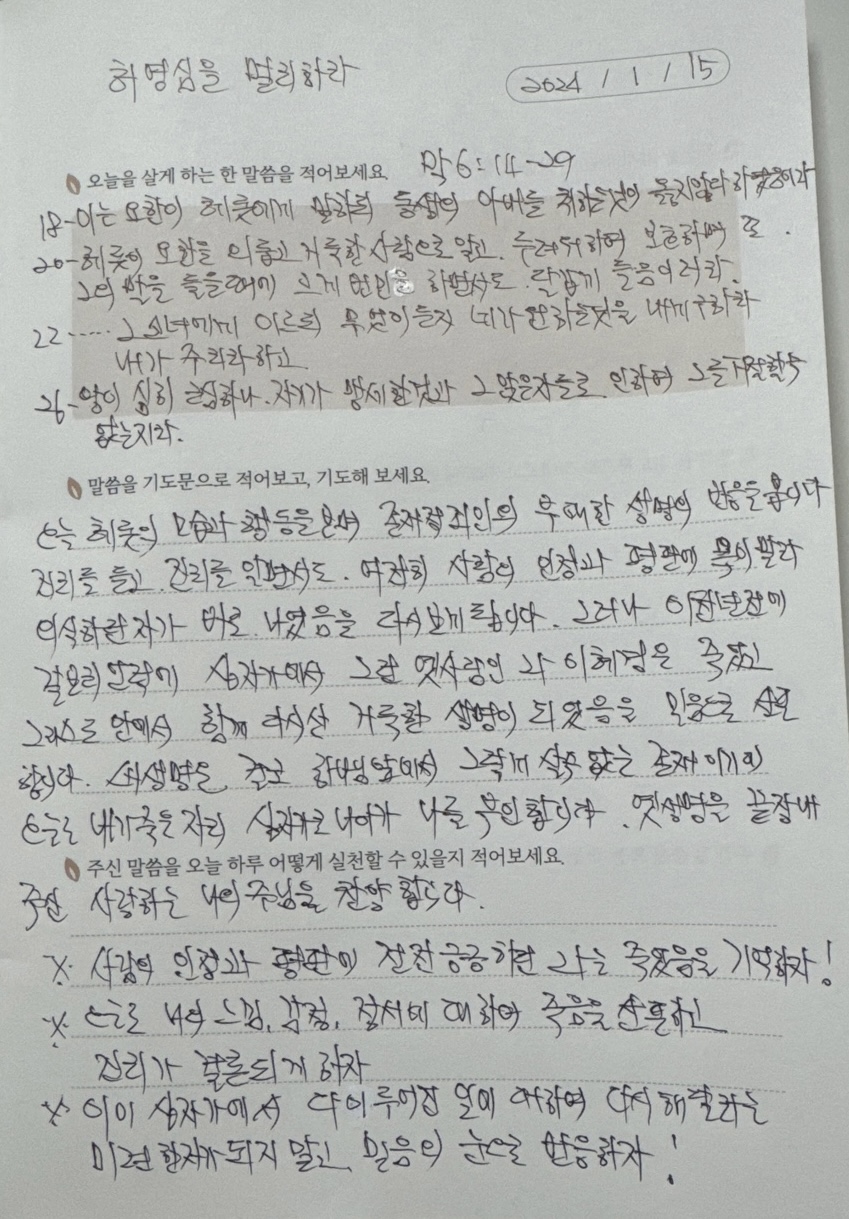 허영심을 멀리하라
2024 / 1 / 15
오늘을 살게 하는 한 말씀을 적어보세요. 막6:14-29
18-이는 요한이 헤롯에게 말하되 동생의 아내를 취하는것이 옳지않다 하였음이라
20-헤롯이 요한을 의롭고 거룩한 사람으로 알고. 두려워하여 보호하며 또.
그의 말을 들을때에 크게 번민을 하면서도. 달갑게 들음이러라.
22..... 그 소녀에게 이르되 무엇이든지 네가 원하는것을 내게 구하라
내가 주리라하고
26-왕이 심히 근심하나. 자기가 맹세한것과 그 앉은자들로 인하여 그를 거절할수
없는지라.
말씀을 기도문으로 적어보고, 기도해 보세요.
오늘 헤롯의 모습과 행동을보며 존재적죄인의 부패한 생명의 반응을 봅니다
진리를 듣고 진리를 알면서도. 여전히 사람의 인정과 평판에 목이말라
의식하던자가 바로 나였음을 다시보게됩니다. 그러나 이천년전에
갈보리언덕에 십자가에서 그런 옛사람인 나 이혜경은 죽었고
그리스도 안에서 함께 다시산 거룩한 생명이 되었음을 믿음으로 선포
합니다. 새생명은 결코 하나님앞에서 그렇게 살수 없는 존재 이기에
오늘도 내가죽은자리 십자가로나아가 나를 부인합니다. 옛생명을 끝장내
주신 말씀을 오늘 하루 어떻게 실천할 수 있을지 적어보세요.
주신 사랑하는 나의 주님을 찬양 합니다.
※ 사람의 인정과 평판에 전전긍긍하던 나는 죽었음을 기억하자!
※ 오늘도 나의 느낌, 감정, 정서에 대하여 죽음을 선포하고
진리가 결론되게 하자
※ 이미 십자가에서 다 이루어진 일에 대하여 다시 해달라는
미련한자가 되지 말고 믿음의 눈으로 반응하자!